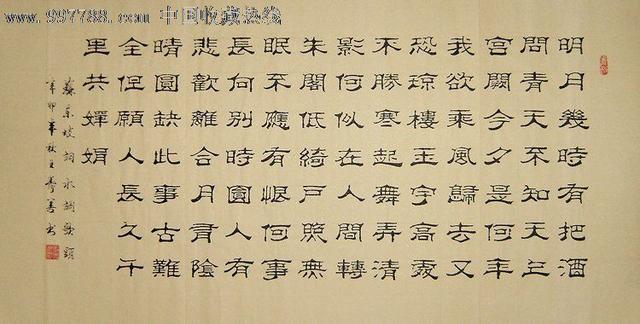 www.997788.com 中国收藏热线
明月幾時有把酒
問青天不知天上
宮闕今夕是何年
我欲乘風歸去又
恐琼樓玉宇高處
不勝寒起舞弄清
影何似在人間轉
朱閣低綺戶照無
眠不應有恨何事
長向別時圓人有
悲歡離合月有陰
晴圓缺此事古難
全但願人長久千
里共嬋娟
蘇東坡詞水調歌頭
辛卯年秋王善书